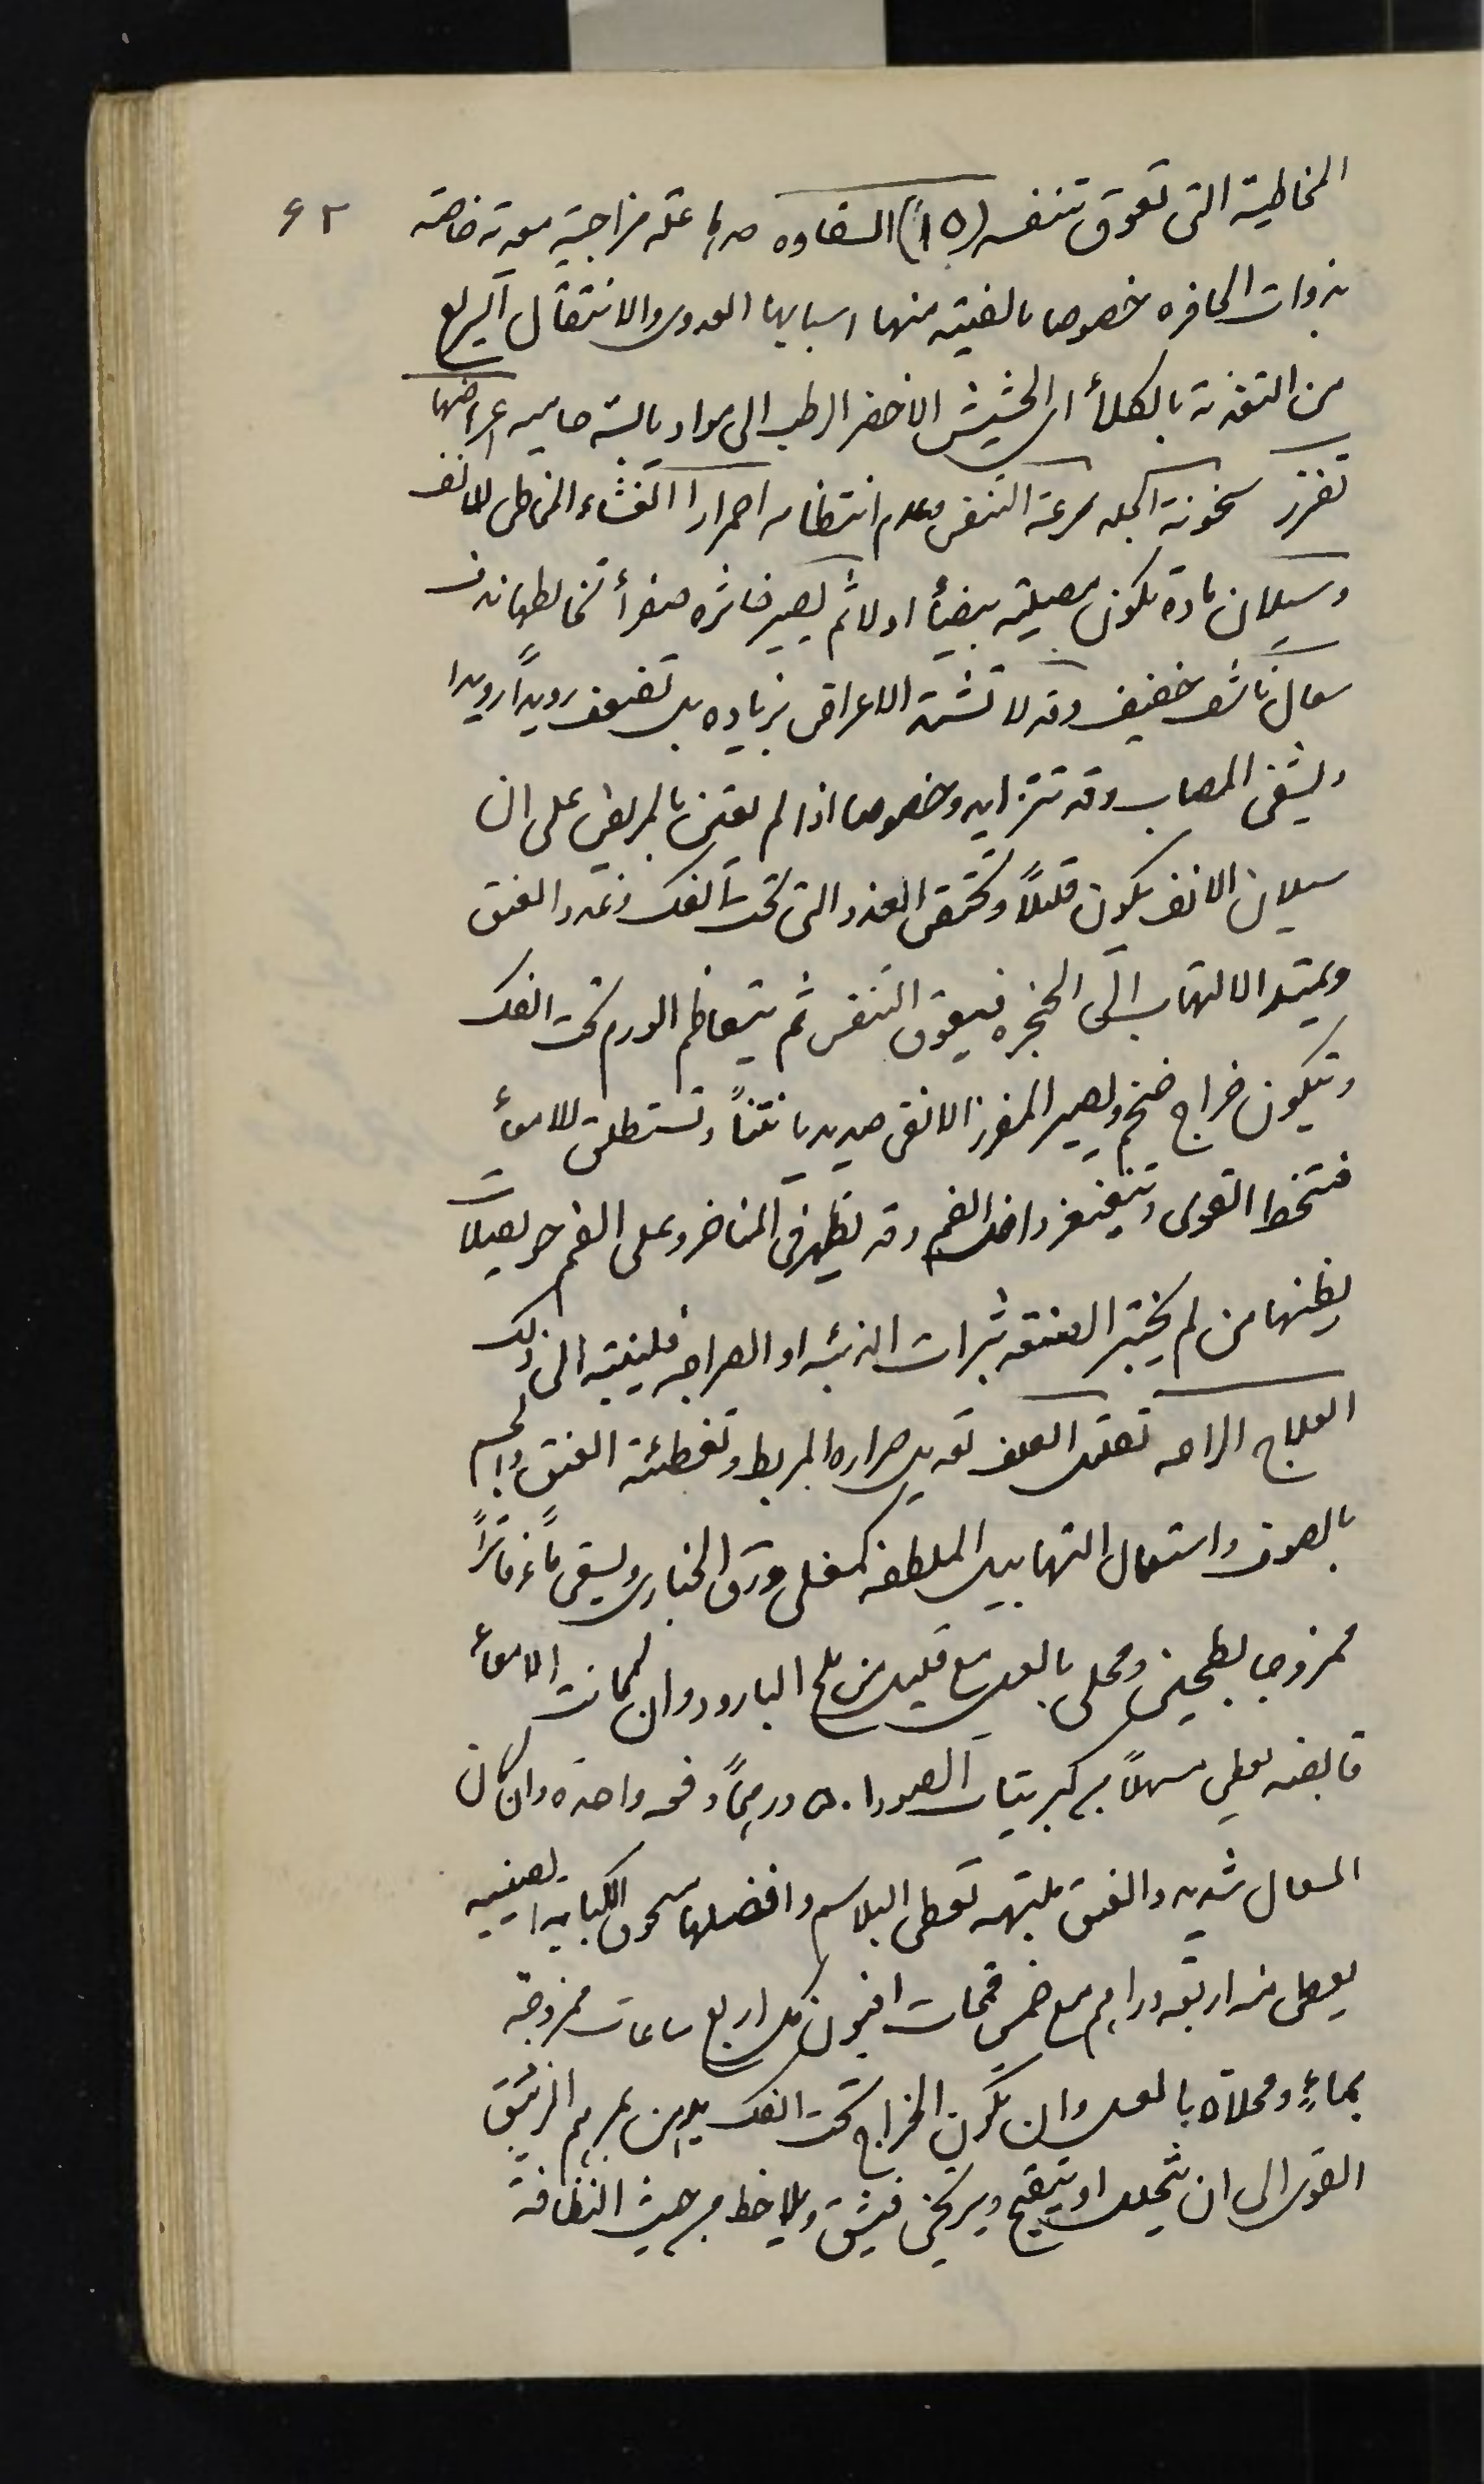 ٦٢
المخاطية التى تعوق تنفسه (١٥) السقاوه هى علة مزاجية معدية خاصة
بذوات الحافره خصوصا بالفتيه منها اسبابها العدوى والانتقال السريع
من التغذية بالكلأ اى الحشيش الاخضر الرطب الى مواد يابسة حاميه اعراضها
تغزر سخونة الجلد سرعة التنفس وعدم انتظامه احمرار الغشاء المخاطى للانف
وسيلان مادة تكون مصلية بيضأ اولا ثم يصير خاثره صفرأ تخالطها
سعال ناشف خفيف وقد لا تشتد الاعراض بزياده بل تضعف رويداً رويدا
ويشفى المصاب وقد تتزايد وخصوصا اذا لم يعتن بالمريض على ان
سيلان الانف يكون قليلاً وتحتقن الغدد التى تحت الفك وغدد العنق
ويمتد الالتهاب الى الحنجره فيعوق التنفس ثم يتعاظم الورم تحت الفك
ويتكون خراج ضخم ويصير المفرز الانفى صديديا نتناً وتستطلق الامعأ
فتنحط القوى ويتغنغر داخل الفم وقد يظهر فى المناخر وعلى الفم حويصلات
يظنها من لم يختبر المهنة بثرات الذئبه او السراجه فلينتبه الى ذلك
العلاج الراحه تقليل العلف تعديل حراره المربط وتغطئة العنق والجسم
بالصوف واستعمال التهابيل الملطفه كمغلى ورق الخبازى ويسقى مأً فاتراً
ممزوجا بطحين ومحلى بالعسل مع قليل من ملح البارود وان كانت الامعأ
قابضه يعطى مسهلاً من كبريتات الصودا ٥٠ درهماً دفعه واحده وان كان
السعال شديد والعنق ملتهبه تعطى البلاسم وافضلها مسحوق الكبابه الصينيه
يعطى منه اربعة دراهم مع خمس قمحات افيون كل اربع ساعات ممزوجة
بماءٍ ومحلاة بالعسل وان تكون الخراج تحت الفك يدهن بمرهم الزئبق
القوى الى ان يتحلل او يتقيح ويرتخى فيشق ويلاحظ من حيث النظافة